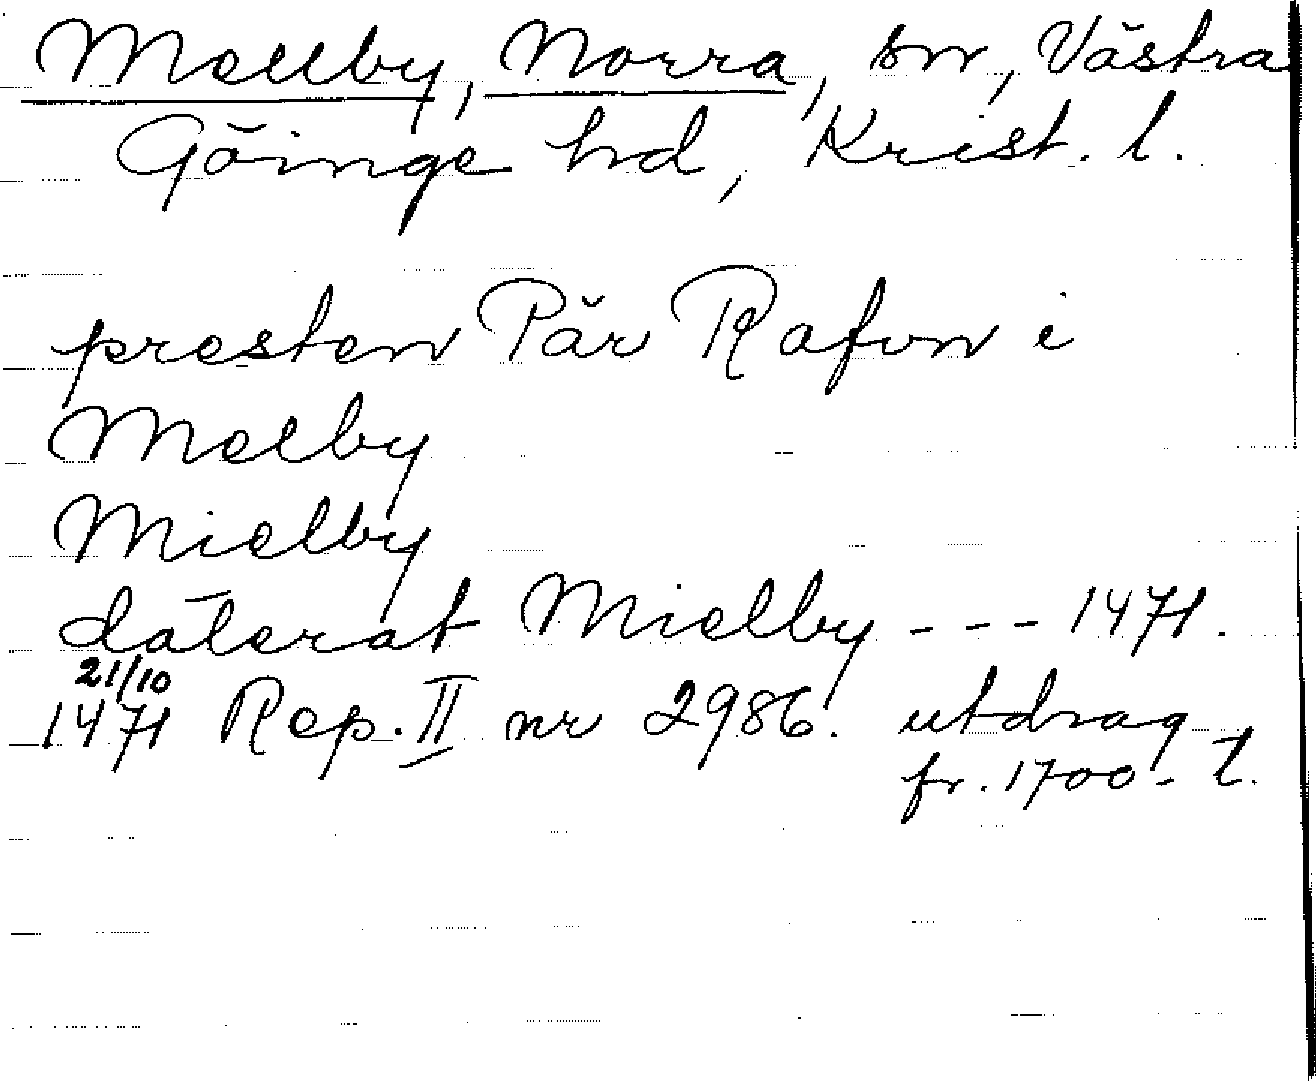 Mellby, Norra, sn, Västra
Göinge hd, Krist. l.
presten Pär Rafvn i
Melby
Mielby
dāterat Mielby - - - 1471.
21/10
1471 Rep. II nr 2986. utdrag
fr. 1700-t.